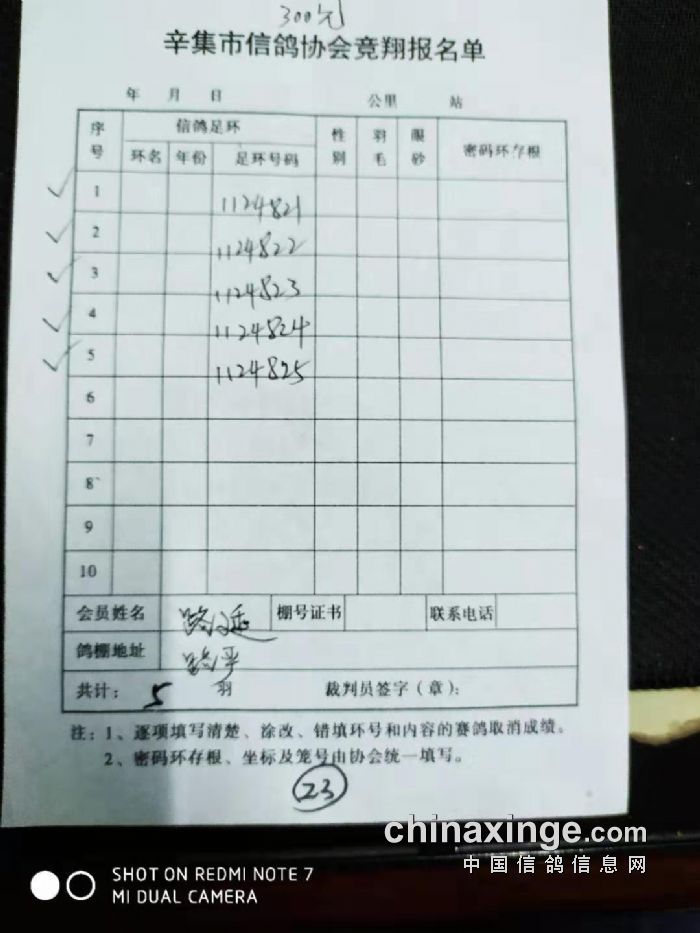 300元
辛集市信鸽协会竞翔报名单
年 月 日 公里 站
序号 信鸽足环 性别 羽毛 眼砂 密码环存根
环名 年份 足环号码
1 1124821
2 1124822
3 1124823
4 1124824
5 1124825
6
7
8
9
10
会员姓名 路延 棚号证书 联系电话
鸽棚地址 路平
共计: 5 羽 裁判员签字(章):
注:1、逐项填写清楚、涂改、错填环号和内容的赛鸽取消成绩。
2、密码环存根、坐标及笼号由协会统一填写。
23
chinaxinge.com
中国信鸽信息网
SHOT ON REDMI NOTE 7
MI DUAL CAMERA